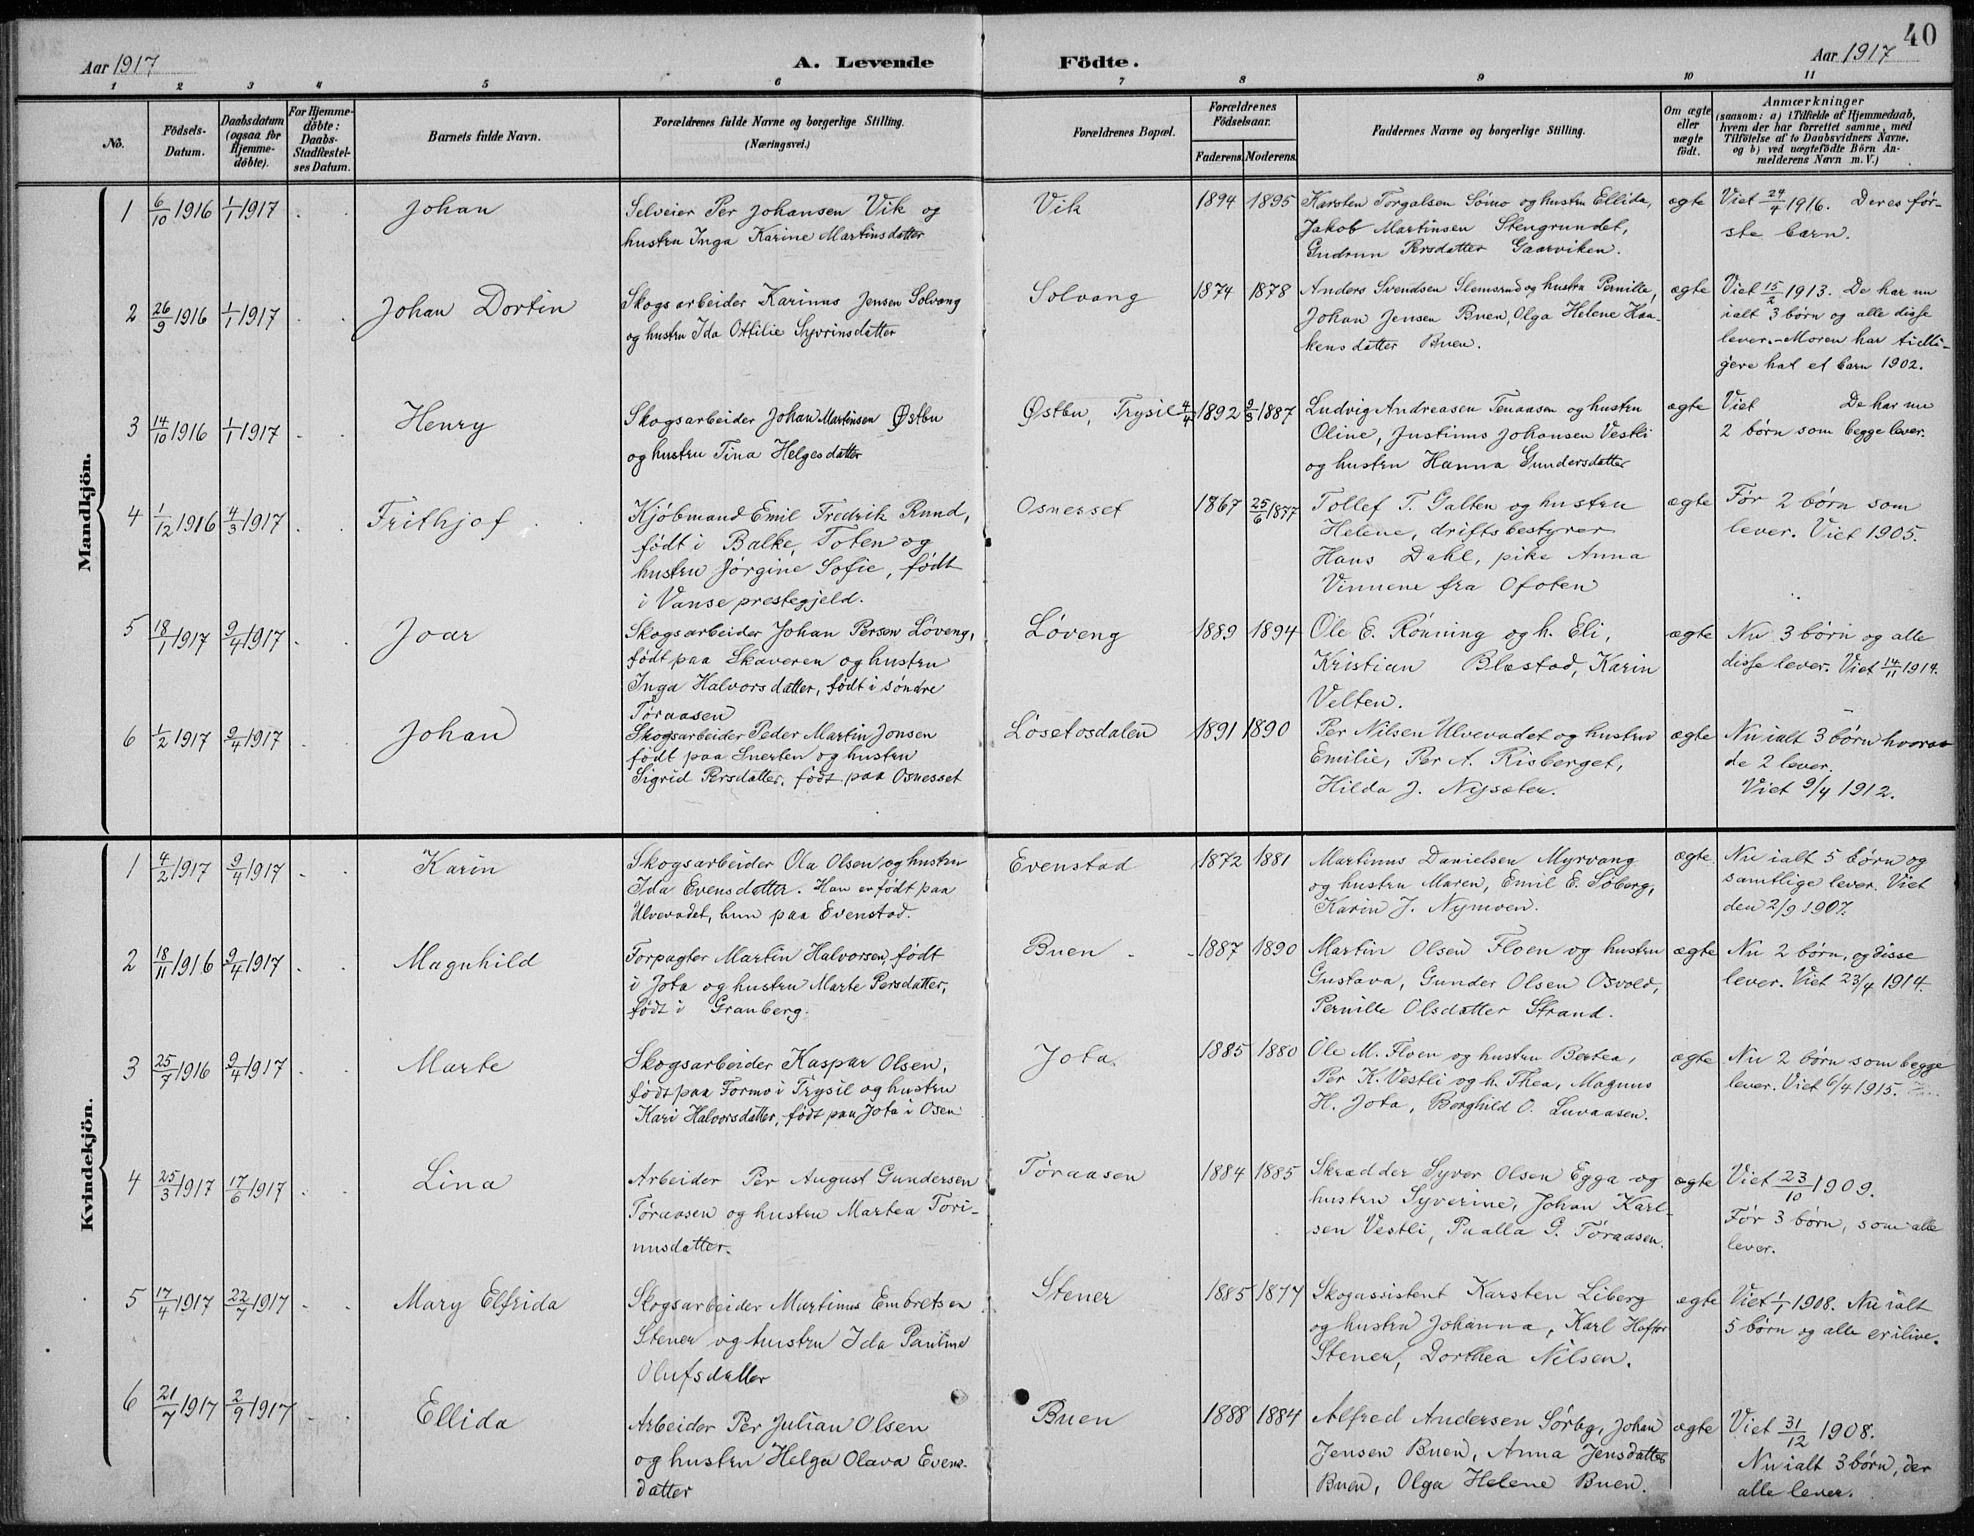 40
Aar 1917
A. Levende
Födte.
Aar 1917
1 2 3 4 5 6 7 8 9 10 11
No.
Födsels-Datum.
Daabsdatum (ogsaa for Hjemme-döbte).
For Hjemme-döbte: Daabs-Stadfæstel-ses Datum.
Barnets fulde Navn.
Forældrenes fulde Navne og borgerlige Stilling.
(Næringsvei.)
Forældrenes Bopæl.
Forældrenes Födselsaar.
Faderens. Moderens.
Faddernes Navne og borgerlige Stilling.
Om ægte eller uægte födt.
Anmærkninger
(saasom: a) i Tilfælde af Hjemmedaab,
hvem der har forrettet samme, med
Tilföielse af to Daabsvidners Navne.
og b) ved uægtefödte Börn An-
melderens Navn m. V.)
Mandkjön.
1 6/10 1916 1/1 1917 Johan
Selveier Per Johansen Vik og
hustru Inga Karine Martinsdatter
Vik 1894 1895
Karsten Torgalsen Sömo og hustru Ellida,
Jakob Martinsen Stengrundet,
Gudrun Persdatter Gaarviken.
ægte
Viet 24/4 1916. Deres før-
ste barn.
2 26/9 1916 1/1 1917 Johan Dortin
Skogsarbeider Karinus Jensen Solvang
og hustru Ida Ottilie Syvrinsdatter
Solvang 1874 1878
Anders Svendsen Slemsrud og hustru Pernille,
Johan Jensen Buen, Olga Helene Haa-
kensdatter Buen.
ægte
Viet 15/2 1913. De har nu
ialt 3 børn og alle disse
lever. - Moren har tidli-
gere hat et barn 1902.
3 14/10 1916 1/1 1917 Henry
Skogsarbeider Johan Martinsen Østbu
og hustru Tina Helgesdatter
Østbu, Trysil 4/4 1892 9/3 1887
Ludvig Andreasen Tenaasen og hustru
Oline, Justinus Johansen Vestli
og hustru Hanna Gundersdatter
ægte
Viet De har nu
2 børn som begge lever.
4 1/12 1916 4/3 1917 Frithjof
Kjöbmand Emil Fredrik Rund,
født i Balke, Toten og
hustru Jørgine Sofie, født
i Vanse prestegjeld.
Osneset 1867 25/6 1877
Tollef T. Galten og hustru
Helene, driftsbestyrer
Hans Dahl, pike Anna
Vinnene fra Ofoten
ægte
Før 2 børn som
lever. Viet 1905.
5 18/1 1917 9/4 1917 Joar
Skogsarbeider Johan Person Løveng,
født paa Skaveren og hustru
Inga Halvorsdatter, født i söndre
Tøraasen
Løveng 1889 1894
Ole E. Rönning og h. Eli,
Kristian Blæstad, Karin
Velten.
ægte
Nu 3 børn og alle
disse lever. Viet 14/11 1914.
6 1/2 1917 9/4 1917 Johan
Skogsarbeider Peder Martin Jonsen
født paa Snerten og hustru
Sigrid Persdatter, født paa Osneset
Løsetosdalen 1891 1890
Per Nilsen Ulvevadet og hustru
Emilie, Per A. Risberget,
Hilda J. Nysæten.
ægte
Nu ialt 3 børn hvorav
de 2 lever.
Viet 9/4 1912.
Kvindekjön.
1 4/2 1917 9/4 1917 Karin
Skogsarbeider Ola Olsen og hustru
Ida Evensdatter. Han er født paa
Ulvevadet, hun paa Evenstad.
Evenstad 1872 1881
Martinus Danielsen Myrvang
og hustru Maren, Emil E. Söberg,
Karin J. Nymoen.
ægte
Nu ialt 5 børn og
samtlige lever. Viet
den 2/9 1907.
2 18/11 1916 9/4 1917 Magnhild
Forpagter Martin Halvorsen, født
i Jota og hustru Marte Persdatter,
født i Granberg.
Buen 1887 1890
Martin Olsen Floen og hustru
Gustava, Gunder Olsen Osvold,
Pernille Olsdatter Strand.
ægte
Nu 2 børn, og disse
lever. Viet 23/4 1914.
3 25/7 1916 9/4 1917 Marte
Skogsarbeider Kaspar Olsen,
født paa Formo i Trysil og hustru
Kari Halvorsdatter, født paa Jota i Osen
Jota 1885 1880
Ole M. Floen og hustru Bertea,
Per K. Vestli og h. Thea, Magnus
H. Jota, Borghild O. Luvaasen.
ægte
Nu 2 børn som begge
lever. Viet 6/4 1915.
4 25/3 1917 17/6 1917 Lina
Arbeider Per August Gundersen
Tøraasen og hustru Martea Tori-
nusdatter.
Tøraasen 1884 1885
Skrædder Syver Olsen Egga og
hustru Syverine, Johan Karl-
sen Vestli, Paalla G. Tøraasen.
ægte
Viet 23/10 1909.
Før 3 børn, som alle
lever.
5 17/4 1917 22/7 1917 Mary Elfrida
Skogsarbeider Martinus Embretsen
Stener og hustru Ida Pauline
Olufsdatter
Stener 1885 1877
Skogassistent Karsten Liberg
og hustru Johanna, Karl Haftor
Stener, Dorthea Nilsen.
ægte
Viet 1/1 1908. Nu ialt
5 børn og alle er ilive.
6 21/7 1917 2/9 1917 Ellida
Arbeider Per Julian Olsen
og hustru Helga Olava Evens-
datter
Buen 1888 1884
Alfred Andersen Sörbg, Johan
Jensen Buen, Anna Jensdatter
Buen, Olga Helene Buen.
ægte
Viet 31/12 1908.
Nu ialt 3 børn, der
alle lever.